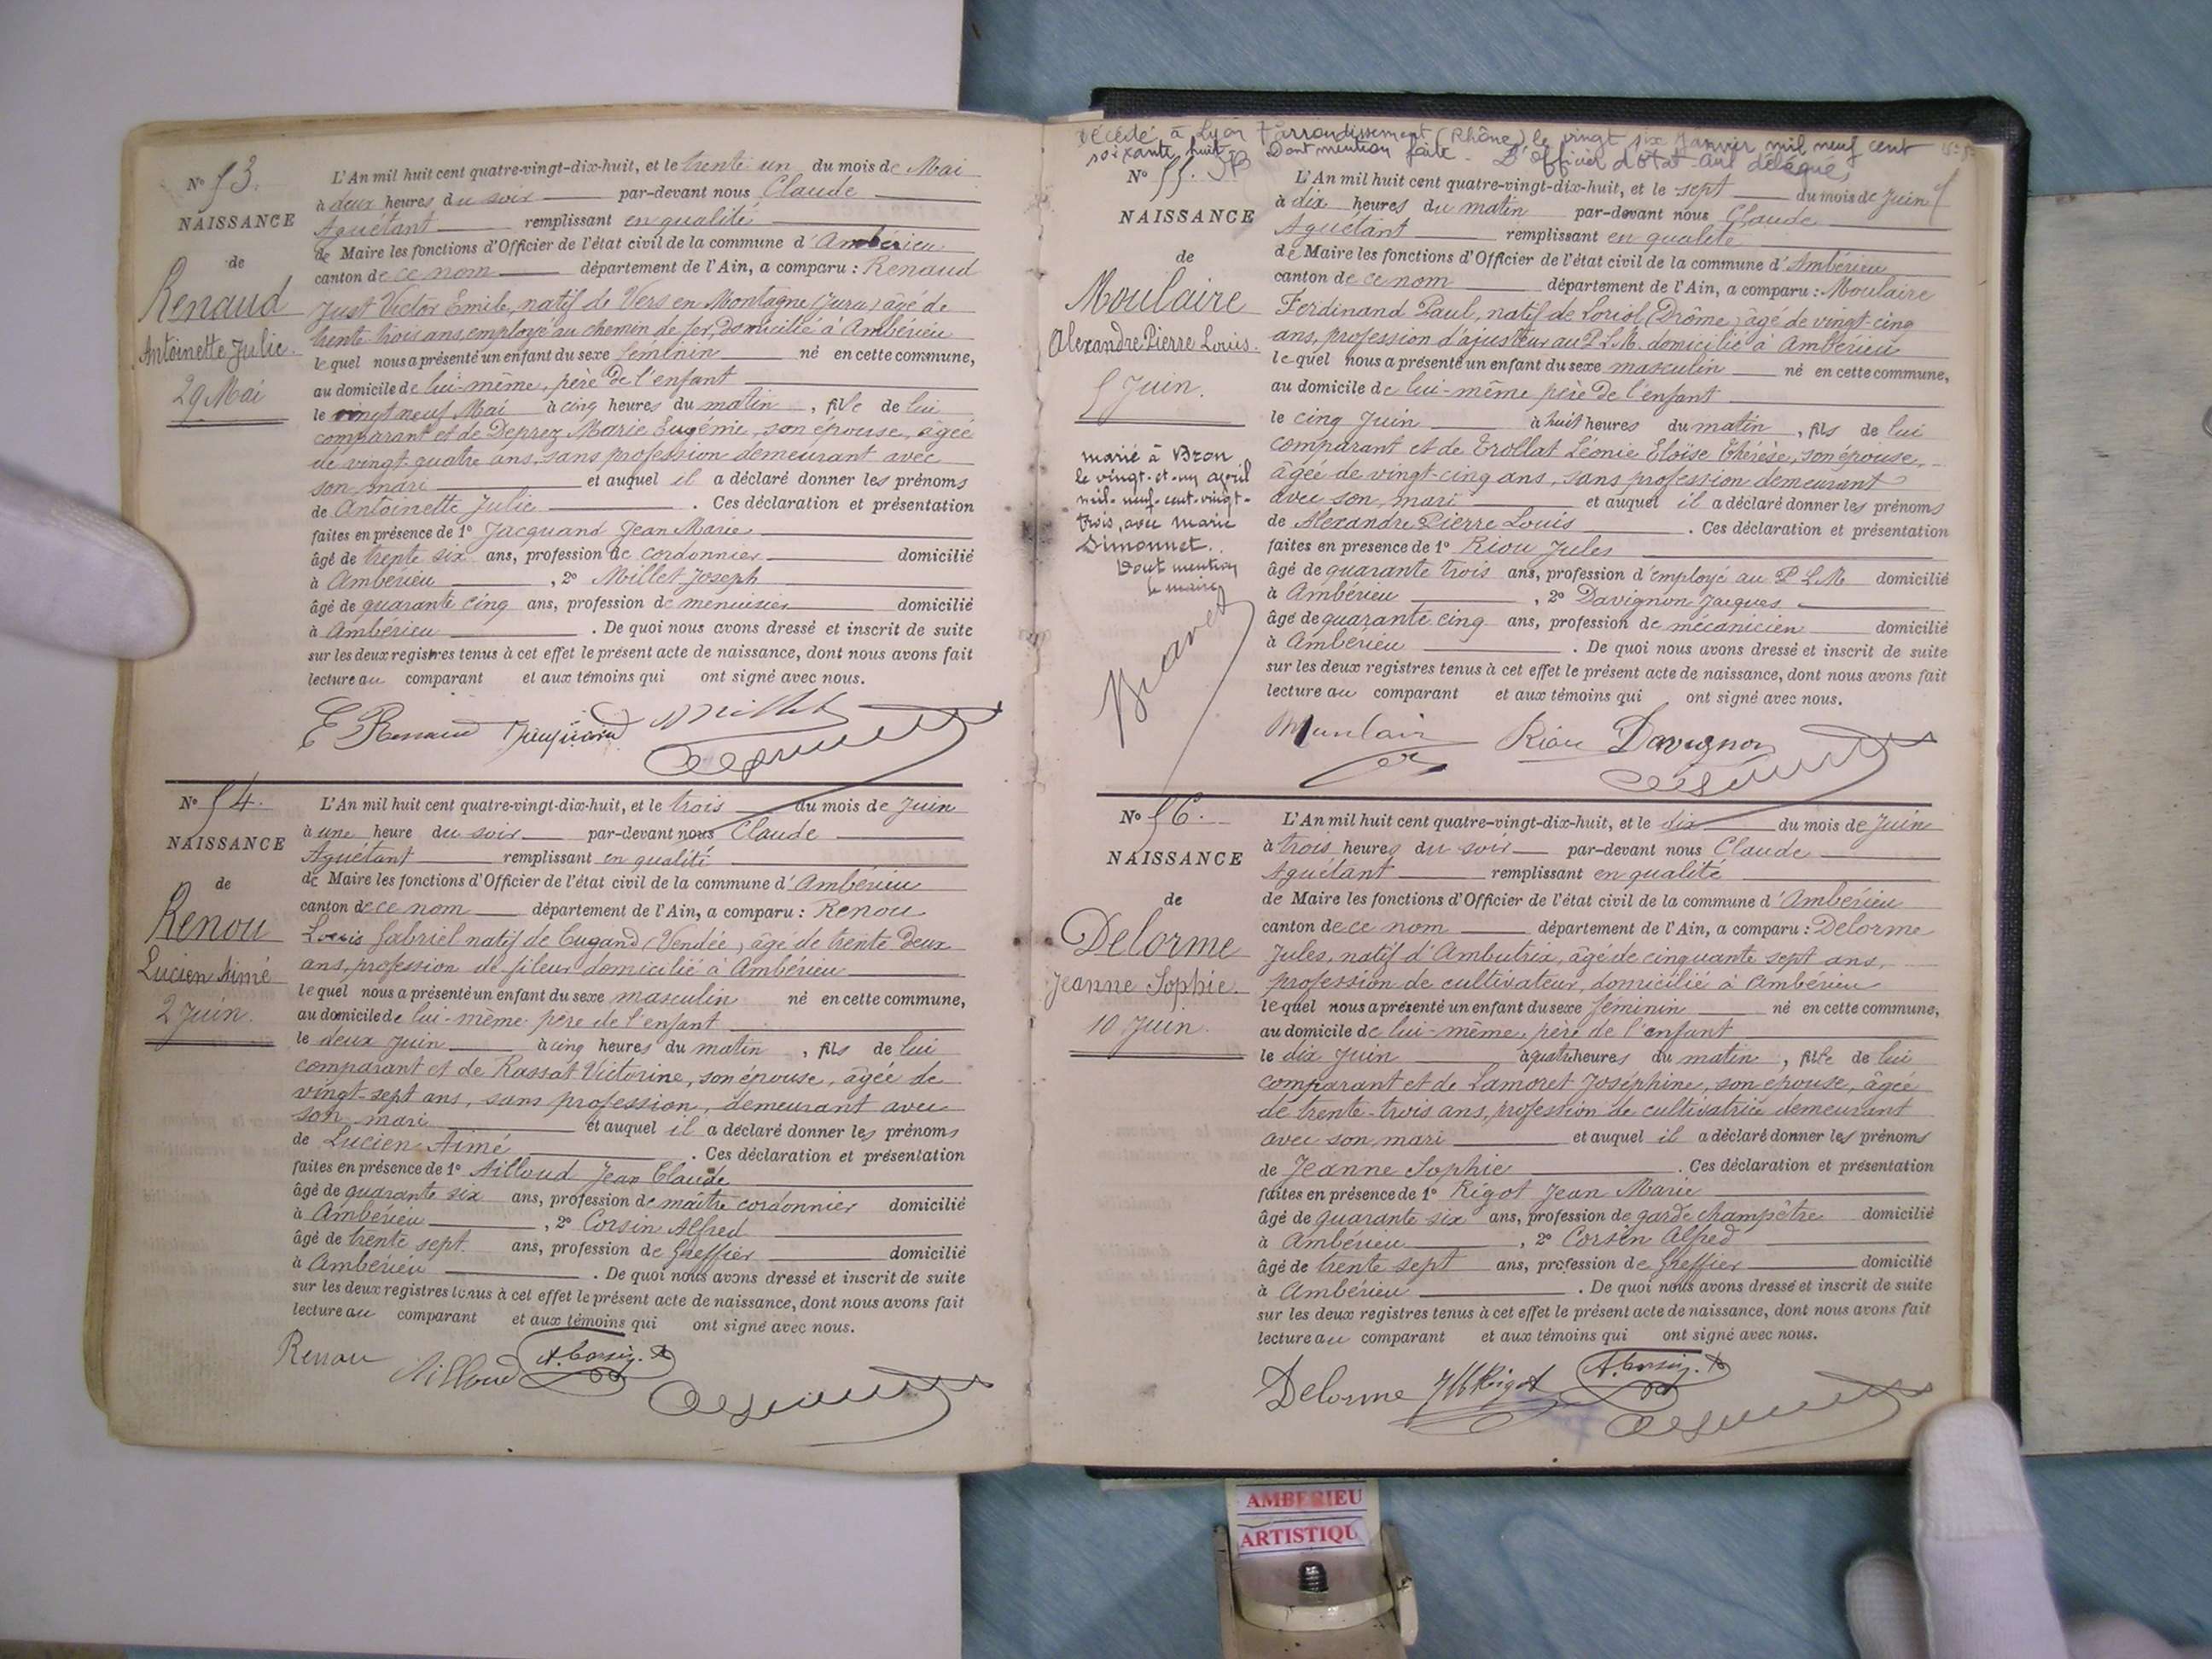 N° 53.
NAISSANCE
de
Renaud
Antoinette Julie
29 Mai
L'An mil huit cent quatre-vingt-dix-huit, et le trente un du mois de Mai
à deux heures du soir par-devant nous Claude
Aguétant remplissant en qualité
de Maire les fonctions d'Officier de l'état civil de la commune d'Ambérieu
canton de ce nom département de l'Ain, a comparu : Renaud
Just Victor Emile, natif de Vers en Montagne (Jura) âgé de
trente trois ans, employé au chemin de fer, domicilié à Ambérieu
lequel nous a présenté un enfant du sexe féminin né en cette commune,
au domicile de lui-même, père de l'enfant
le vingt neuf Mai à cinq heures du matin, fille de lui
comparant et de Deprez Marie Eugénie, son épouse, âgée
de vingt quatre ans, sans profession demeurant avec
son mari et auquel il a déclaré donner les prénoms
de Antoinette Julie. Ces déclaration et présentation
faites en présence de 1° Jacquand Jean Marie
âgé de trente six ans, profession de cordonnier domicilié
à Ambérieu, 2° Millet Joseph
âgé de quarante cinq ans, profession de menuisier domicilié
à Ambérieu. De quoi nous avons dressé et inscrit de suite
sur les deux registres tenus à cet effet le présent acte de naissance, dont nous avons fait
lecture au comparant et aux témoins qui ont signé avec nous.
E Renaud Jacquand Millet
N° 54.
NAISSANCE
de
Renou
Lucien Aimé
2 Juin.
L'An mil huit cent quatre-vingt-dix-huit, et le trois du mois de Juin
à une heure du soir par-devant nous Claude
Aguétant remplissant en qualité
de Maire les fonctions d'Officier de l'état civil de la commune d'Ambérieu
canton de ce nom département de l'Ain, a comparu : Renou
Louis Gabriel natif de Cugand (Vendée) âgé de trente deux
ans, profession de fileur domicilié à Ambérieu
lequel nous a présenté un enfant du sexe masculin né en cette commune,
au domicile de lui-même père de l'enfant
le deux Juin à cinq heures du matin, fils de lui
comparant et de Rassat Victorine, son épouse, âgée de
vingt-sept ans, sans profession, demeurant avec
son mari et auquel il a déclaré donner les prénoms
de Lucien Aimé. Ces déclaration et présentation
faites en présence de 1° Ailloud Jean Claude
âgé de quarante six ans, profession de maître cordonnier domicilié
à Ambérieu, 2° Corsin Alfred
âgé de trente sept ans, profession de Greffier domicilié
à Ambérieu. De quoi nous avons dressé et inscrit de suite
sur les deux registres tenus à cet effet le présent acte de naissance, dont nous avons fait
lecture au comparant et aux témoins qui ont signé avec nous.
Renou Ailloud A. Corsin
Décédé à Lyon 7 arrondissement (Rhône) le vingt six Janvier mil neuf cent
soixante huit Dont mention faite. L'Officier d'état-civil délégué
N° 55.
NAISSANCE
de
Moulaire
Alexandre Pierre Louis.
5 Juin.
marié à Bron
le vingt-et-un avril
mil-neuf-cent-vingt-
trois, avec Marie
Simonnet.
Dont mention
le maire
L'An mil huit cent quatre-vingt-dix-huit, et le sept du mois de Juin
à dix heures du matin par-devant nous Claude
Aguétant remplissant en qualité
de Maire les fonctions d'Officier de l'état civil de la commune d'Ambérieu
canton de ce nom département de l'Ain, a comparu : Moulaire
Ferdinand Paul, natif de Loriol (Drôme) âgé de vingt-cinq
ans, profession d'ajusteur au P.L.M. domicilié à Ambérieu
lequel nous a présenté un enfant du sexe masculin né en cette commune,
au domicile de lui-même père de l'enfant
le cinq Juin à huit heures du matin, fils de lui
comparant et de Trollat Léonie Eloïse Thérèse, son épouse,
âgée de vingt-cinq ans, sans profession demeurant
avec son mari et auquel il a déclaré donner les prénoms
de Alexandre Pierre Louis. Ces déclaration et présentation
faites en présence de 1° Riou Jules
âgé de quarante trois ans, profession d'employé au P L M domicilié
à Ambérieu, 2° Davignon Jacques
âgé de quarante cinq ans, profession de mécanicien domicilié
à Ambérieu. De quoi nous avons dressé et inscrit de suite
sur les deux registres tenus à cet effet le présent acte de naissance, dont nous avons fait
lecture au comparant et aux témoins qui ont signé avec nous.
Riou Davignon
N° 56.
NAISSANCE
de
Delorme
Jeanne Sophie.
10 Juin.
L'An mil huit cent quatre-vingt-dix-huit, et le dix du mois de Juin
à trois heures du soir par-devant nous Claude
Aguétant remplissant en qualité
de Maire les fonctions d'Officier de l'état civil de la commune d'Ambérieu
canton de ce nom département de l'Ain, a comparu : Delorme
Jules, natif d'Ambutrix, âgé de cinquante sept ans,
profession de cultivateur, domicilié à Ambérieu
lequel nous a présenté un enfant du sexe féminin né en cette commune,
au domicile de lui-même, père de l'enfant
le dix Juin à quatre heures du matin, fille de lui
comparant et de Lamoret Joséphine, son épouse, âgée
de trente-trois ans, profession de cultivatrice demeurant
avec son mari et auquel il a déclaré donner les prénoms
de Jeanne Sophie. Ces déclaration et présentation
faites en présence de 1° Rigot Jean Marie
âgé de quarante six ans, profession de garde champêtre domicilié
à Ambérieu, 2° Corsin Alfred
âgé de trente sept ans, profession de Greffier domicilié
à Ambérieu. De quoi nous avons dressé et inscrit de suite
sur les deux registres tenus à cet effet le présent acte de naissance, dont nous avons fait
lecture au comparant et aux témoins qui ont signé avec nous.
Delorme JM Rigot A. Corsin
AMBERIEU
ARTISTIQU